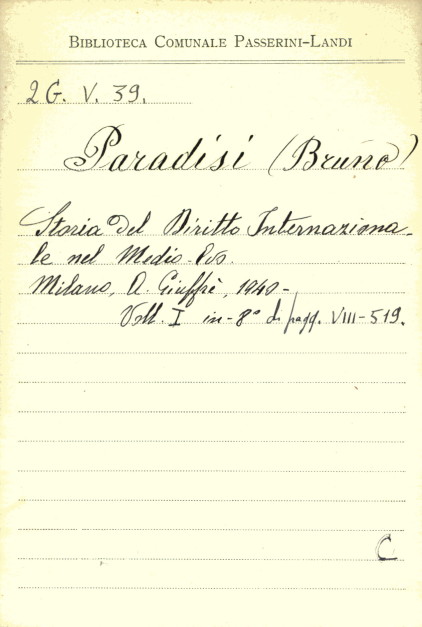 BIBLIOTECA COMUNALE PASSERINI-LANDI
2 G. V. 39.
Paradisi (Bruno)
Storia del Diritto Internaziona-
le nel Medio-Evo.
Milano, A. Giuffrè, 1940-
Voll. I in-8° di pagg. VIII-519.
C